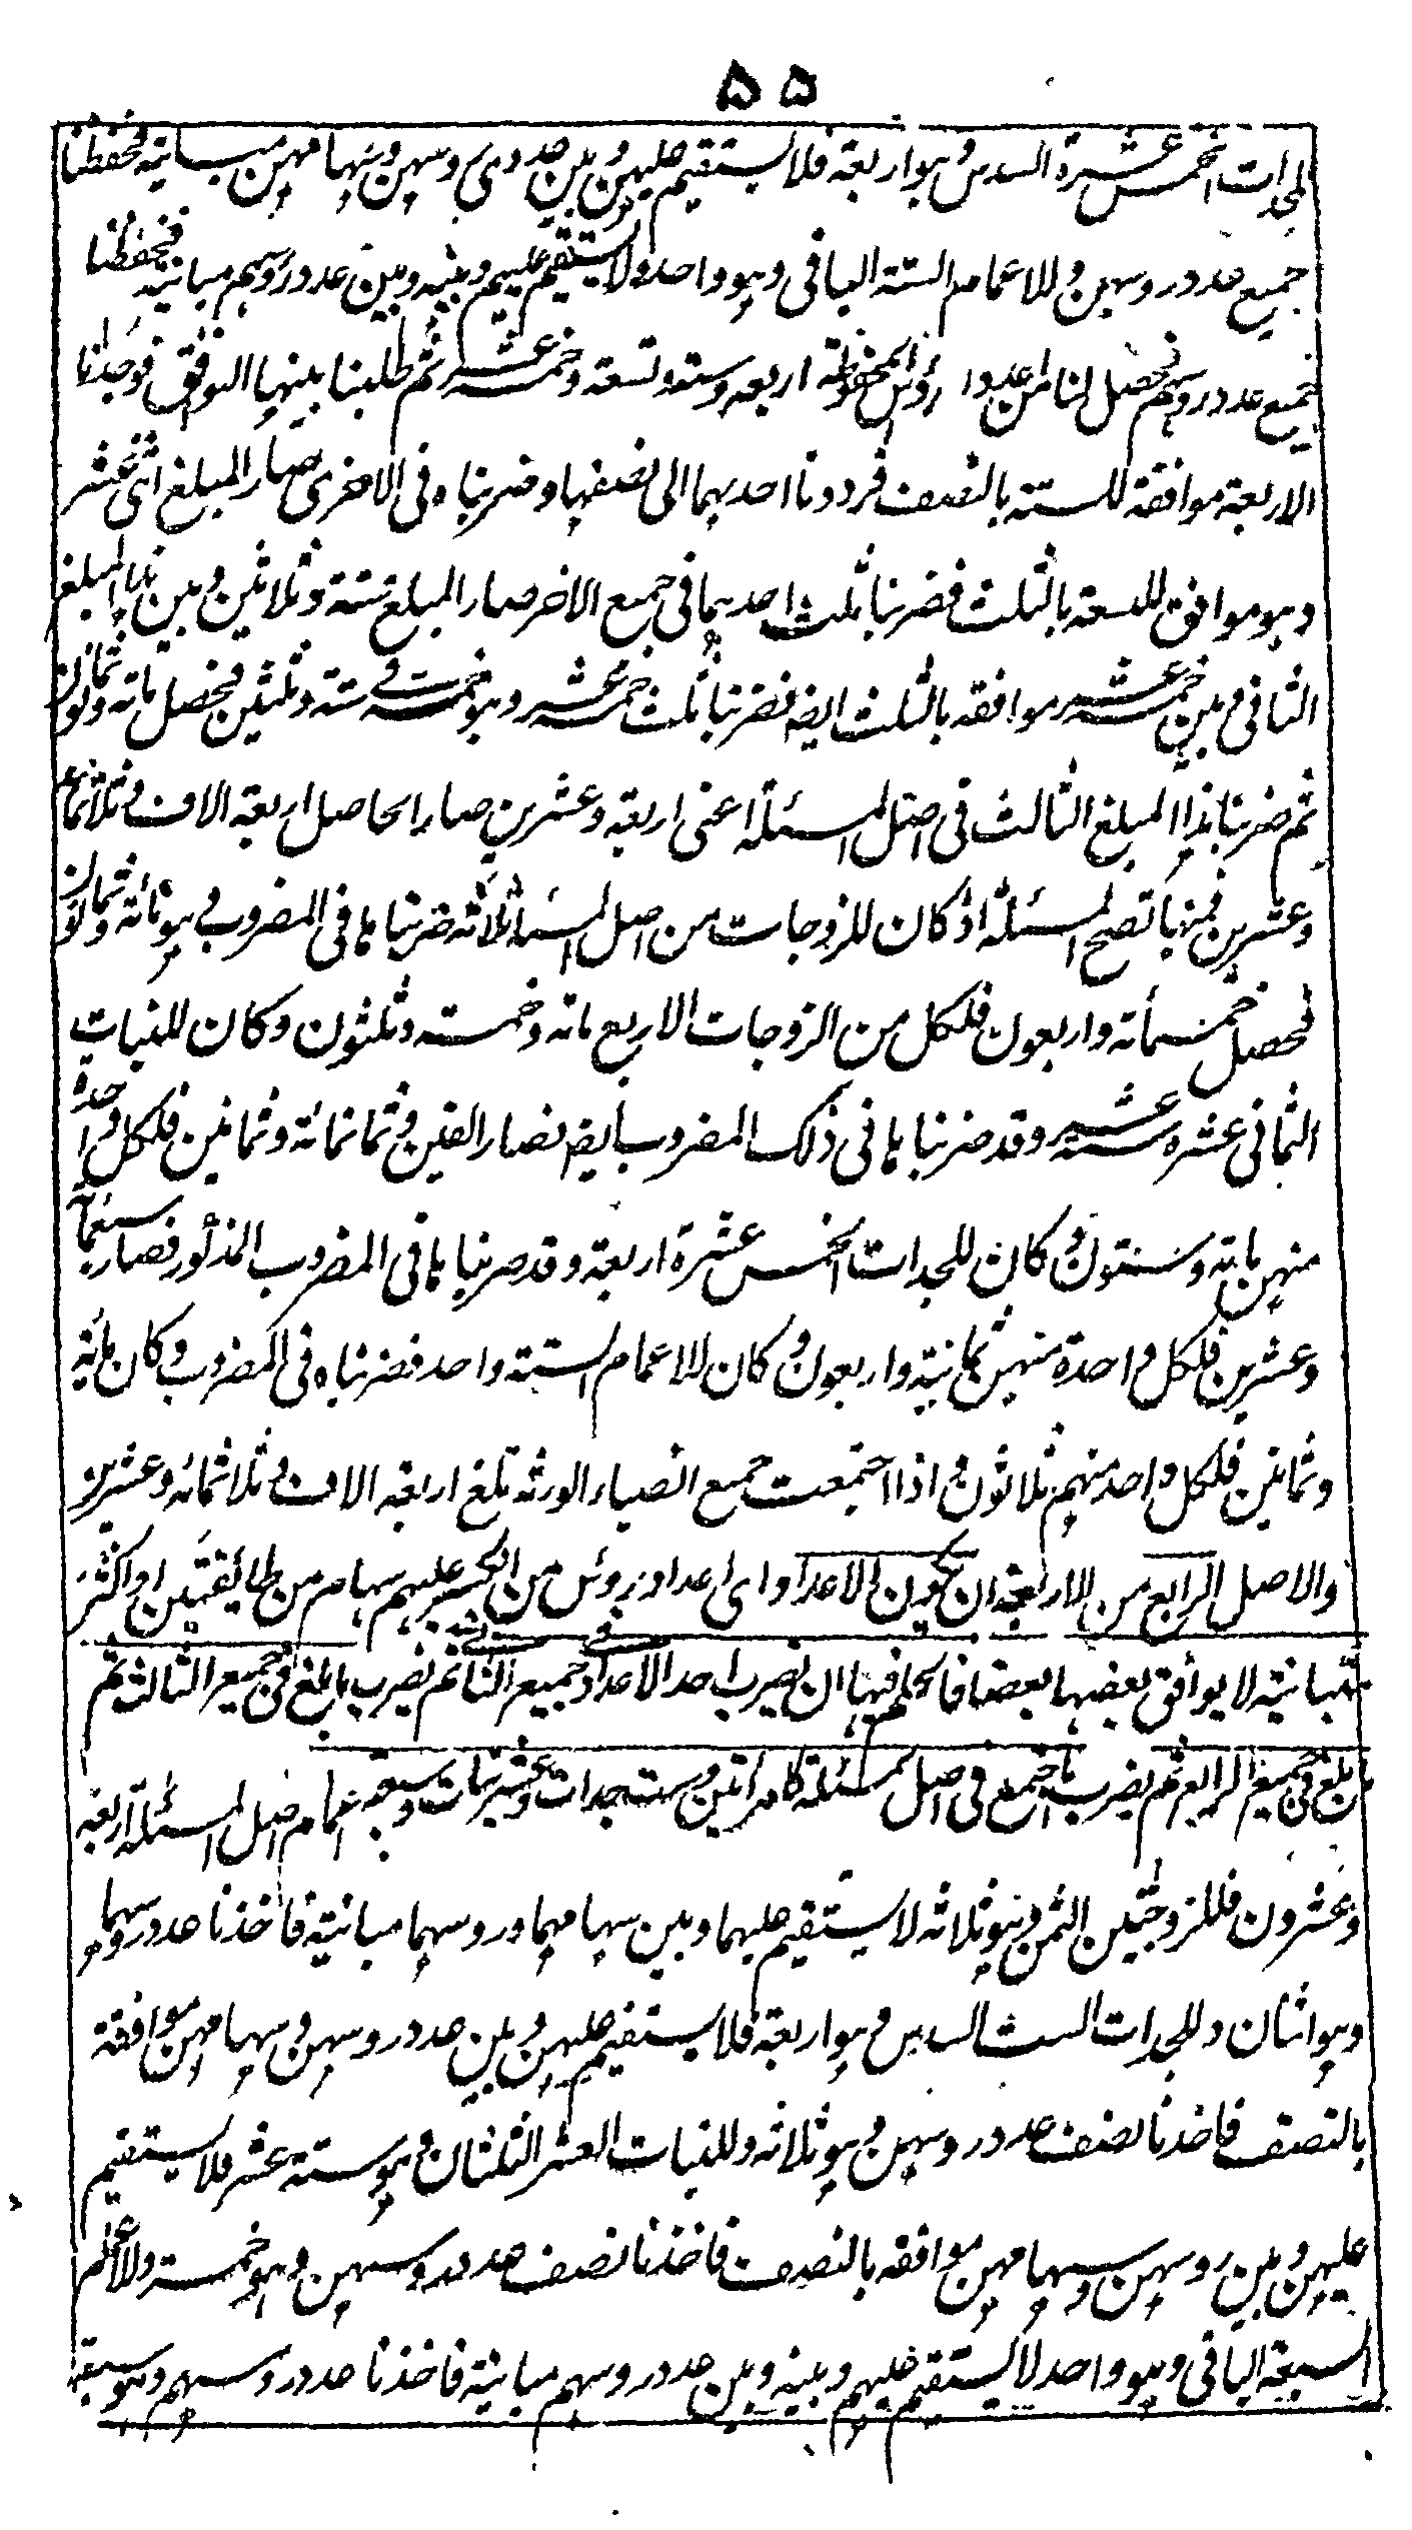 ۵۵
الجدات الخمس عشرة السدس وهو اربعة فلا يستقيم عليهن وبين عدد رؤسهن وسهامهن مباينة فحفظنا
جميع عدد رؤسهن وللاعمام الستة الباقى وهو واحد ولا يستقيم عليهم وبينه وبين عدد رؤسهم مباينة فحفظنا
جميع عدد رؤسهم فحصل لنا من اعداد رؤس المحفوظة اربعة وستة وتسعة وخمسة عشر ثم طلبنا بينها التوفق فوجدنا
الاربعة موافقة للستة بالنصف فرددنا احديهما الى نصفها وضربناه فى الاخرى صار المبلغ اثنى عشر
وهو موافق للتسعة بالثلث فضربنا ثلث احديهما فى جميع الاخر صار المبلغ ستة وثلاثين وبين هذا المبلغ
الثانى وبين خمسة عشر موافقة بالثلث ايضا فضربنا ثلث خمسة عشر وهو خمسة فى ستة وثلثين فحصل مائة وثمانون
ثم ضربنا هذا المبلغ الثالث فى اصل المسئلة اعنى اربعة وعشرين صار الحاصل اربعة الاف وثلاثمائة
وعشرين فمنها تصح المسئلة اذ كان للزوجات من اصل المسئلة ثلاثة ضربناها فى المضروب وهو مائة وثمانون
فحصل خمسمائة واربعون فلكل من الزوجات الاربع مائة وخمسة وثلثون وكان للبنات
الثمانى عشرة ستة عشر وقد ضربناها فى ذلك المضروب ايضا فصار الفين وثمانمائة وثمانين فلكل واحدة
منهن مائة وستون وكان للجدات الخمس عشرة اربعة وقد ضربناها فى المضروب المذكور فصار سبعمائة
وعشرين فلكل واحدة منهن ثمانية واربعون وكان للاعمام الستة واحد فضربناه فى المضروب وكان مائة
وثمانين فلكل واحد منهم ثلاثون واذا اجتمعت جميع انصباء الورثة تبلغ اربعة الاف وثلاثمائة وعشرين
والاصل الرابع من الاربعة ان يكون الاعداد اى اعداد رؤس من انكسر عليهم سهام من طائفتين او اكثر
متباينة لا يوافق بعضها بعضا فالحكم فيها ان يضرب احد الاعداد فى جميع الثانى ثم يضرب ما بلغ فى جميع الثالث ثم
ما بلغ فى جميع الرابع ثم يضرب ما اجتمع فى اصل المسئلة كامرأتين وست جدات وعشر بنات وسبعة اعمام اصل المسئلة اربعة
وعشرون فللزوجتين الثمن وهو ثلاثة لا يستقيم عليهما وبين سهامهما ورؤسهما مباينة فاخذنا عدد رؤسهما
وهو اثنان وللجدات الست السدس وهو اربعة فلا يستقيم عليهن وبين عدد رؤسهن وسهامهن موافقة
بالنصف فاخذنا نصف عدد رؤسهن وهو ثلاثة وللبنات العشر الثلثان وهو ستة عشر فلا يستقيم
عليهن وبين رؤسهن وسهامهن موافقة بالنصف فاخذنا نصف عدد رؤسهن وهو خمسة وللاعمام
السبعة الباقى وهو واحد لا يستقيم عليهم وبينه وبين عدد رؤسهم مباينة فاخذنا عدد رؤسهم وهو سبعة